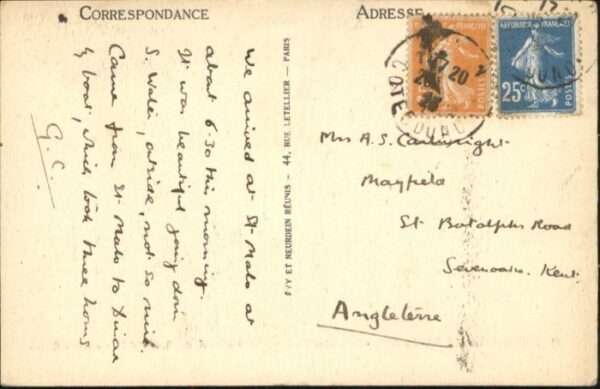 CORRESPONDANCE
ADRESSE
We arrived at St-Malo at
about 6.30 this morning.
It was beautiful going down
S. Water, outside, not so nice.
Came from St Malo to Dinar
by boat, which took three hours
G.C.
LÉVY ET NEURDEIN RÉUNIS — 44, RUE LETELLIER — PARIS
RÉPUBLIQUE FRANÇAISE
25c
Mrs A.S. Cartwright
Mayfield
St Botolphs Road
Sevenoaks. Kent.
Angleterre